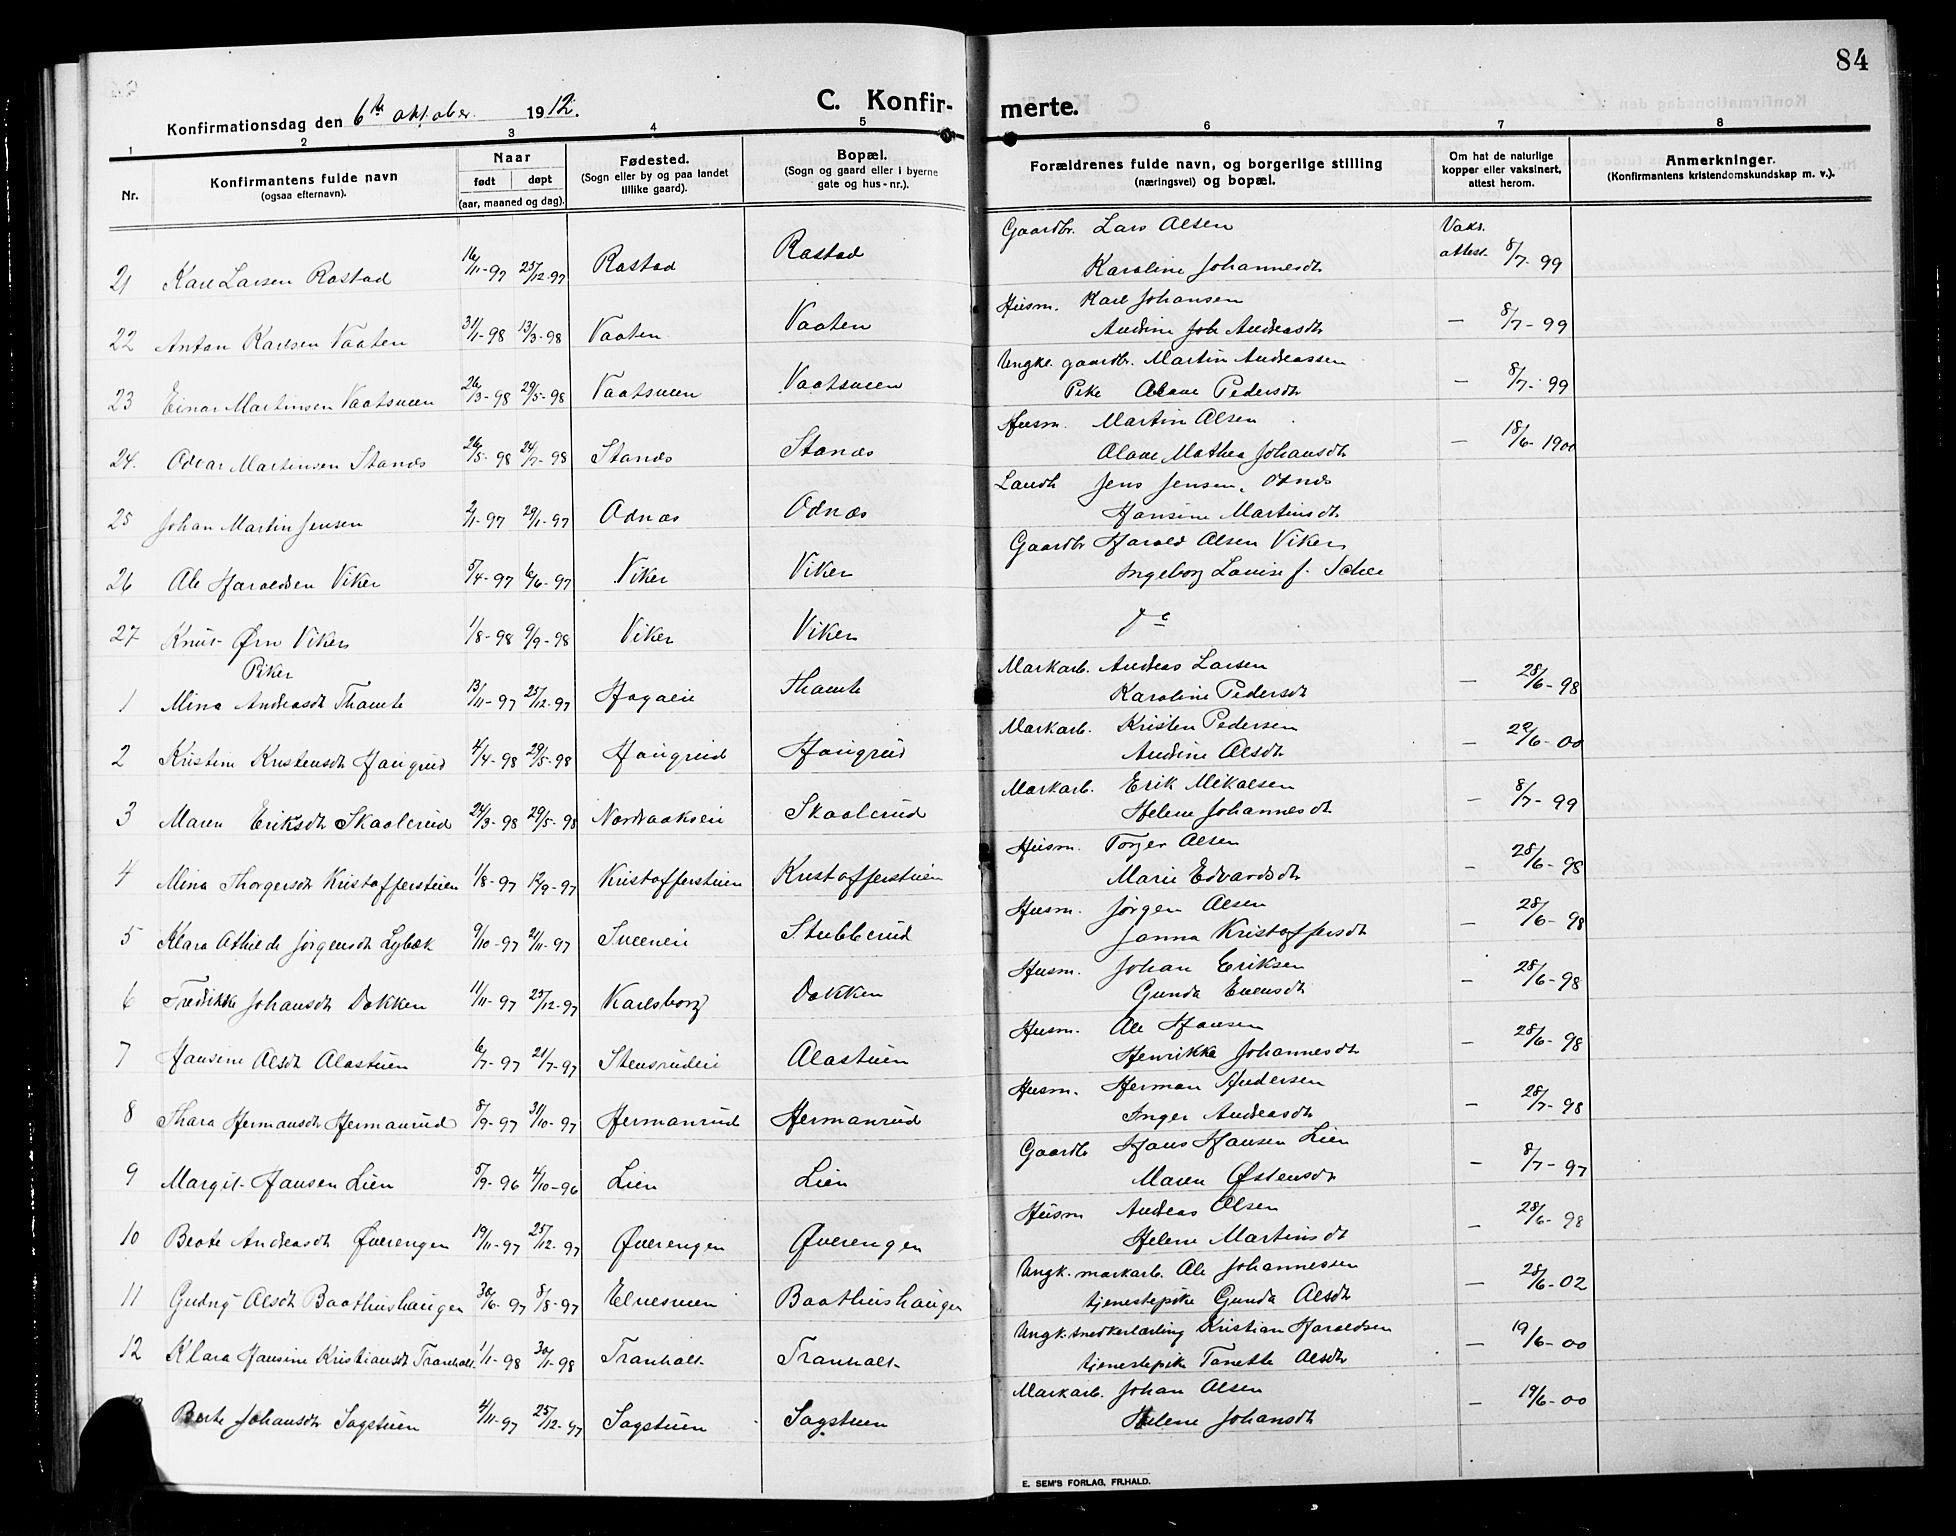 84
C. Konfir- merte.
Konfirmationsdag den 6te oktober 1912.
1 2 3 4 5 6 7 8
Nr.
Konfirmantens fulde navn
(ogsaa efternavn).
Naar
født døpt
(aar, maaned og dag).
Fødested.
(Sogn eller by og paa landet
tillike gaard).
Bopæl.
(Sogn og gaard eller i byerne
gate og hus-nr.).
Forældrenes fulde navn, og borgerlige stilling
(næringsvei) og bopæl.
Om hat de naturlige
kopper eller vaksinert,
attest herom.
Anmerkninger.
(Konfirmantens kristendomskundskap m. v.).
21 Karl Larsen Rostad 16/11-97 25/12-97 Rostad Rostad Gaardbr. Lars Olsen Vaks.
Karoline Johannesdt attest. 8/7-99
22 Anton Karlsen Vaaten 31/1-98 13/3-98 Vaaten Vaaten Husm. Karl Johansen
Andine Joh Andreasdt — 8/7-99
23 Einar Martinsen Vaatsveen 26/3-98 29/5-98 Vaatsveen Vaatsveen Ungk. gaardbr. Martin Andreassen
Pike Olave Pedersdt — 8/7-99
24. Odvar Martinsen Stanes 26/5-98 24/7-98 Stanes Stanes Husm. Martin Olsen
Olave Mathea Johansdt — 18/6-1900
25 Johan Martin Jensen 2/1-97 29/1-97 Odnæs Odnæs Landh. Jens Jensen, Odnæs
Hansine Martinsdt
26 Ole Haraldsen Viker 5/4-97 6/6-97 Viker Viker Gaardbr Harald Olsen Viker
Ingeborg Lovise f. Schee
27 Knut Ørn Viker 1/8-98 9/9-98 Viker Viker
Piker
1 Mina Andreasdt Thomle 13/11-97 25/12-97 Hagaeie Thomle Markarb. Andreas Larsen
Karoline Pedersdt — 28/6-98
2 Kristine Kristensdt Haugrud 4/4-98 29/5-98 Haugrud Haugrud Markarb. Kristen Pedersen
Andine Olsdt — 22/6-00
3 Maren Eriksdt Skaalerud 24/3-98 29/5-98 Nordraakeie Skaalerud Markarb. Erik Mikalsen
Helene Johannesdt — 8/7-99
4 Mina Thorgersdt Kristofferstuen 1/8-97 12/9-97 Kristofferstuen Kristofferstuen Husm. Torger Olsen
Marie Edvardsdt — 28/6-98
5 Klara Othilde Jørgensdt Lybæk 9/10-97 21/11-97 Sveeneie Stubberud Husm. Jørgen Olsen
Janna Kristoffersdt — 28/6-98
6 Fredrikke Johansdt Dokken 11/11-97 25/12-97 Karlsborg Dokken Husm. Johan Eriksen
Gunda Evensdt — 28/6-98
7 Hansine Olsdt Olastuen 6/7-97 21/7-97 Stensrudeie Olastuen Husm. Ole Hansen
Henrikke Johannesdt — 28/6-98
8 Thora Hermansdt Hermanrud 8/9-97 31/10-97 Hermanrud Hermanrud Husm. Herman Andersen
Inger Andreasdt — 28/7-98
9 Margit Hansen Lien 5/9-96 4/10-96 Lien Lien Gaardb Hans Hansen Lien
Maren Østensdt — 8/7-97
10 Beate Andreasdt Øverengen 19/11-97 25/12-97 Øverengen Øverengen Husm Andreas Olsen
Helene Martinsdt — 28/6-98
11 Gudny Olsdt Baathushaugen 30/6-97 8/8-97 Elvesveen Baathushaugen Ungk. markarb. Ole Johannessen
tjenestepike Gunda Olsdt — 28/6-02
12 Klara Hansine Kristiansdt Tranholt 1/1-98 30/1-98 Tranholt Tranholt Ungk. snedkerlærling Kristian Haraldsen
tjenestepike Tonette Olsdt — 19/6-00
Berte Johansdt Sagstuen 4/11-97 25/12-97 Sagstuen Sagstuen Markarb. Johan Olsen
Helene Johansdt — 19/6-00
E. SEM'S FORLAG, FR.HALD.